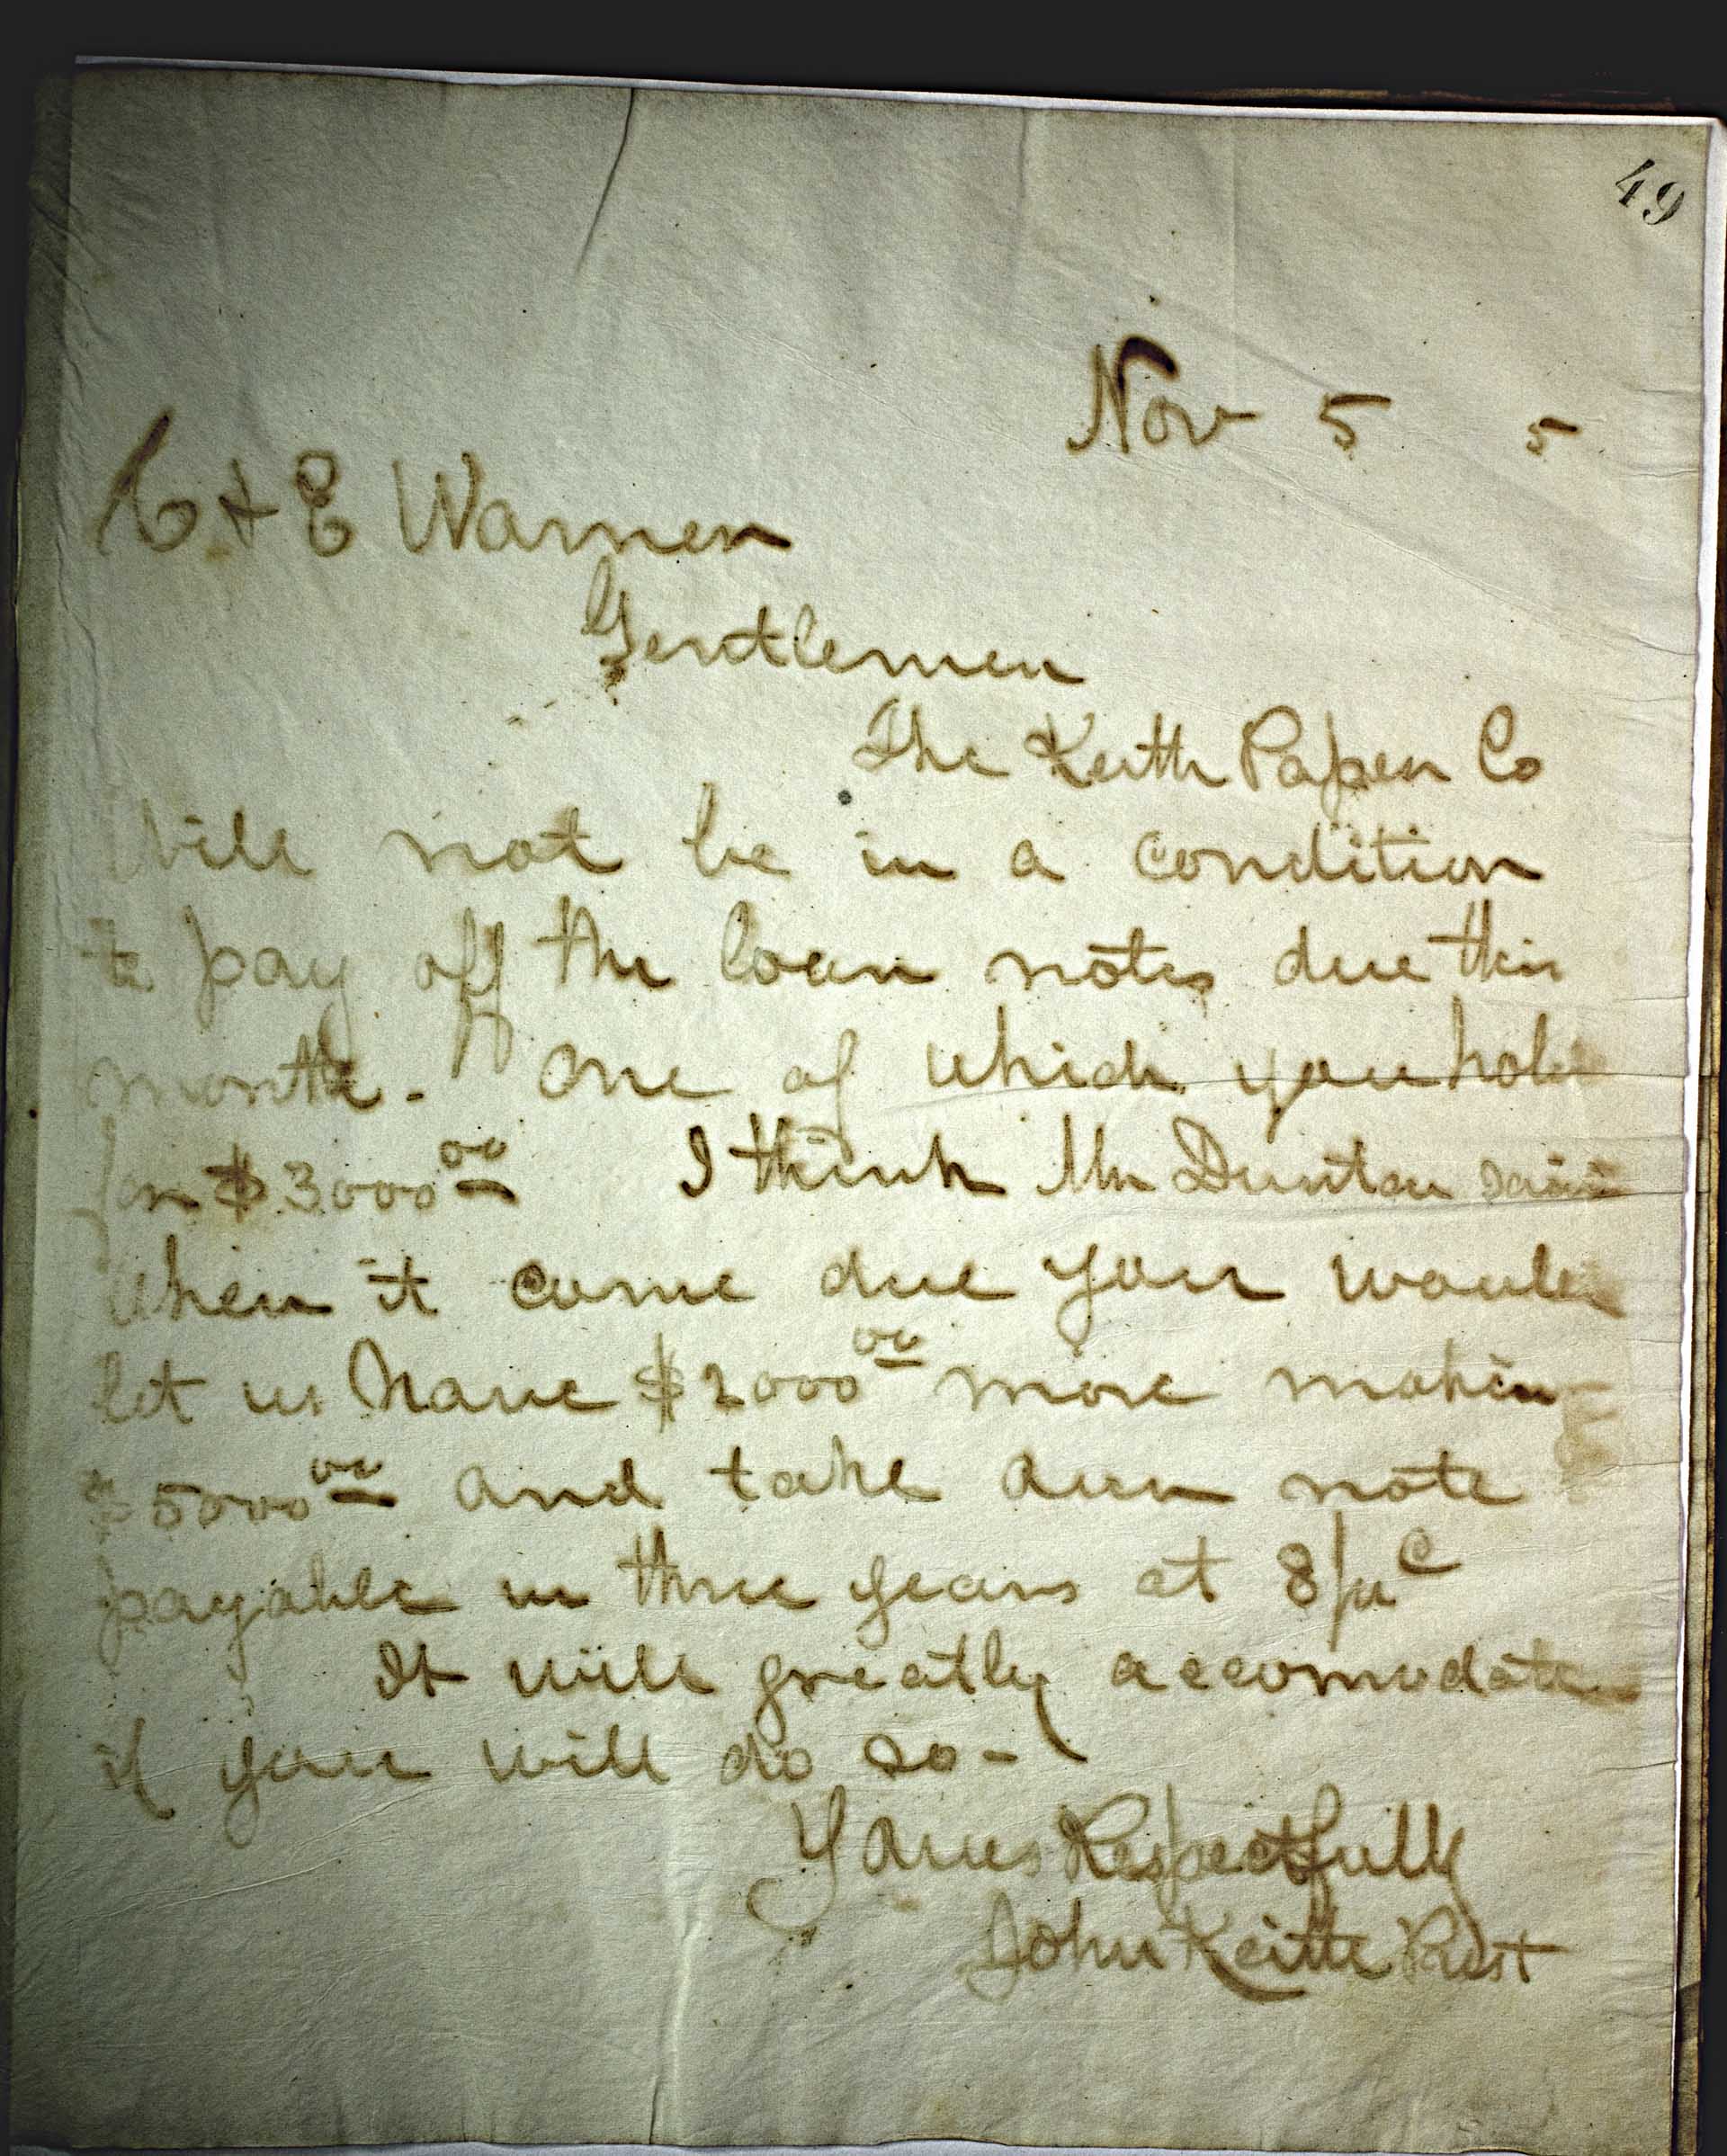 49
Nov 5 5
C & E Warner
Gentlemen
The Keith Paper Co
Will not be in a condition
to pay off the loan notes due this
month - one of which you hold
for $3000 00 I think Mr Duntan said
When it came due you would
let us have $2000 00 more making
$5000 00 and take our note
payable in three years at 8 pr c
It will greatly accomodate
if you will do so -
Yours Respectfully
John Keith Prest